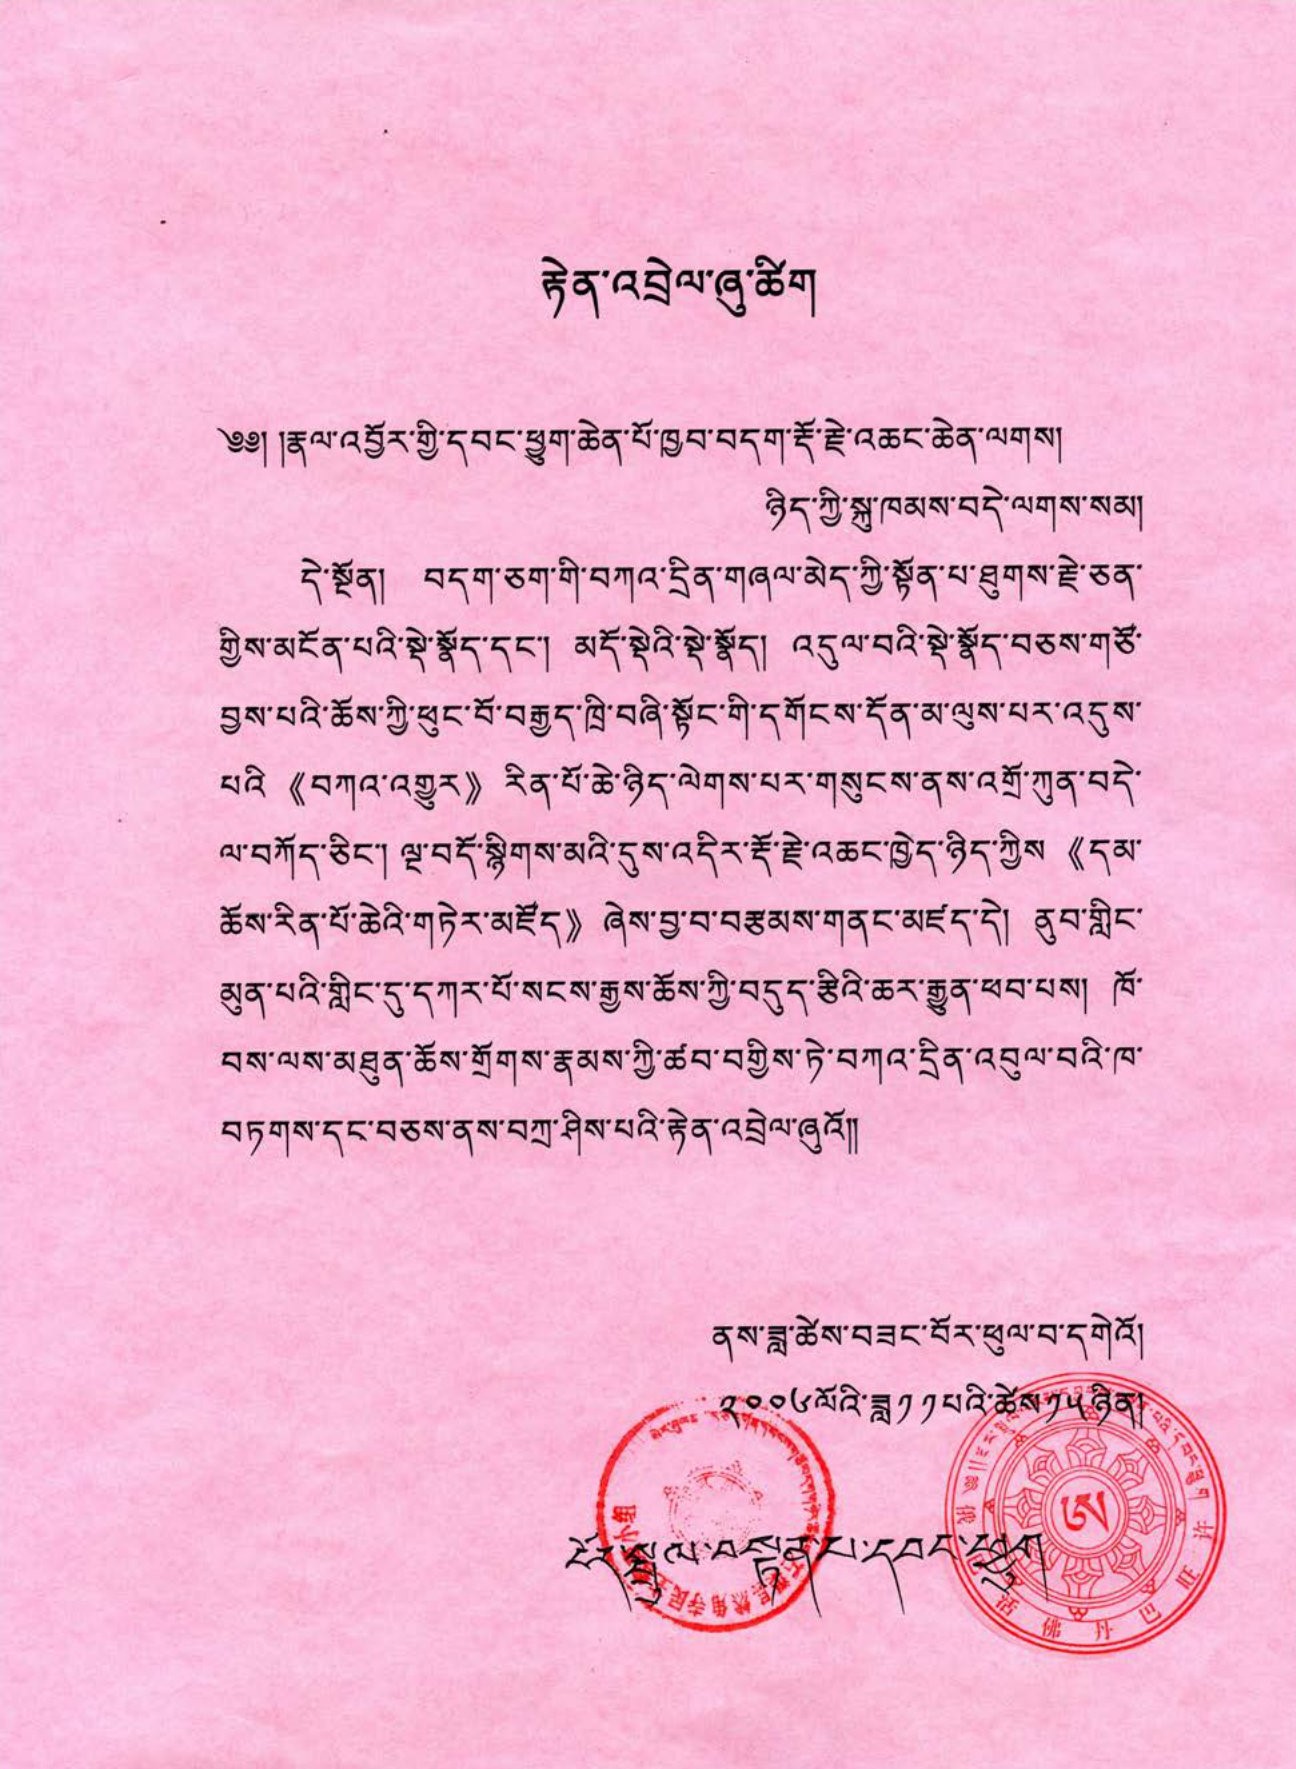 རྟེན་འབྲེལ་ཞུ་ཚིག
༄༅། །རྣལ་འབྱོར་གྱི་དབང་ཕྱུག་ཆེན་པོ་ཁྱབ་བདག་རྡོ་རྗེ་འཆང་ཆེན་ལགས།
ཉིད་ཀྱི་སྐུ་ཁམས་བདེ་ལགས་སམ།
དེ་སྔོན། བདག་ཅག་གི་བཀའ་དྲིན་གཞལ་མེད་ཀྱི་སྟོན་པ་ཐུགས་རྗེ་ཅན་
གྱིས་མངོན་པའི་སྡེ་སྣོད་དང་། མདོ་སྡེའི་སྡེ་སྣོད། འདུལ་བའི་སྡེ་སྣོད་བཅས་གཙོ་
བྱས་པའི་ཆོས་ཀྱི་ཕུང་པོ་བརྒྱད་ཁྲི་བཞི་སྟོང་གི་དགོངས་དོན་མ་ལུས་པར་འདུས་
པའི 《བཀའ་འགྱུར》 རིན་པོ་ཆེ་ཉིད་ལེགས་པར་གསུངས་ནས་འགྲོ་ཀུན་བདེ་
ལ་བཀོད་ཅིང་། ལྔ་བདོ་སྙིགས་མའི་དུས་འདིར་རྡོ་རྗེ་འཆང་ཁྱེད་ཉིད་ཀྱིས 《དམ་
ཆོས་རིན་པོ་ཆེའི་གཏེར་མཛོད》 ཞེས་བྱ་བ་བརྩམས་གནང་མཛད་དེ། ནུབ་གླིང་
མུན་པའི་གླིང་དུ་དཀར་པོ་སངས་རྒྱས་ཆོས་ཀྱི་བདུད་རྩིའི་ཆར་རྒྱུན་ཕབ་པས། ཁོ་
བས་ལས་མཐུན་ཆོས་གྲོགས་རྣམས་ཀྱི་ཚབ་བགྱིས་ཏེ་བཀའ་དྲིན་འབུལ་བའི་ཁ་
བཏགས་དང་བཅས་ནས་བཀྲ་ཤིས་པའི་རྟེན་འབྲེལ་ཞུའོ༎
ནས་ཟླ་ཚེས་བཟང་པོར་ཕུལ་བ་དགེའོ།
༢༠༠༦ལོའི་ཟླ་༡༡པའི་ཚེས་༡༥ཉིན།
ངོར་སྤྲུལ་བསྟན་པ་དབང་ཕྱུག
活佛丹巴